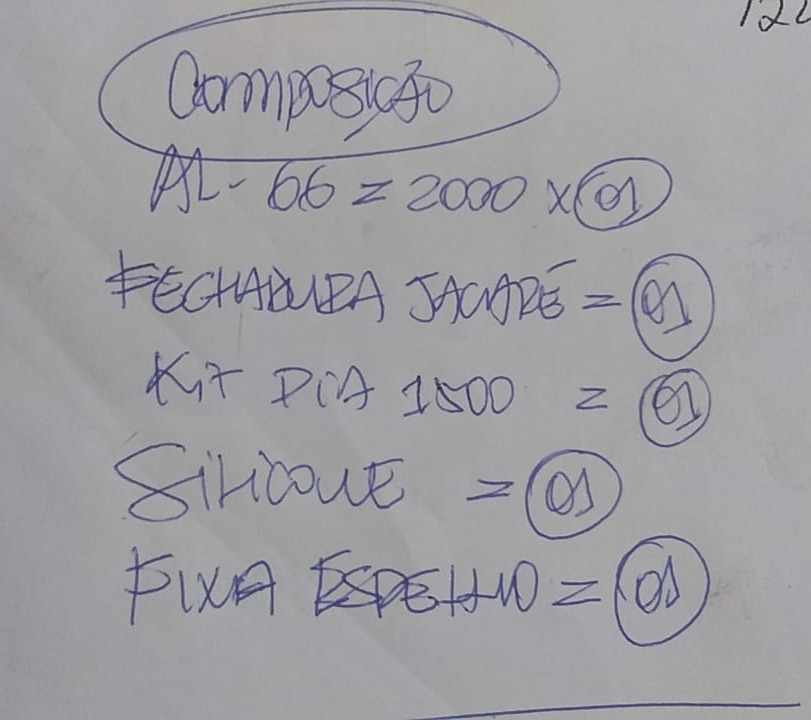 122
Composição
AL- 66 = 2000 x 01
FECHADURA JACARÉ = 01
Kit PIA 1500 = 01
SILICONE = 01
FIXA ESPELHO = 01